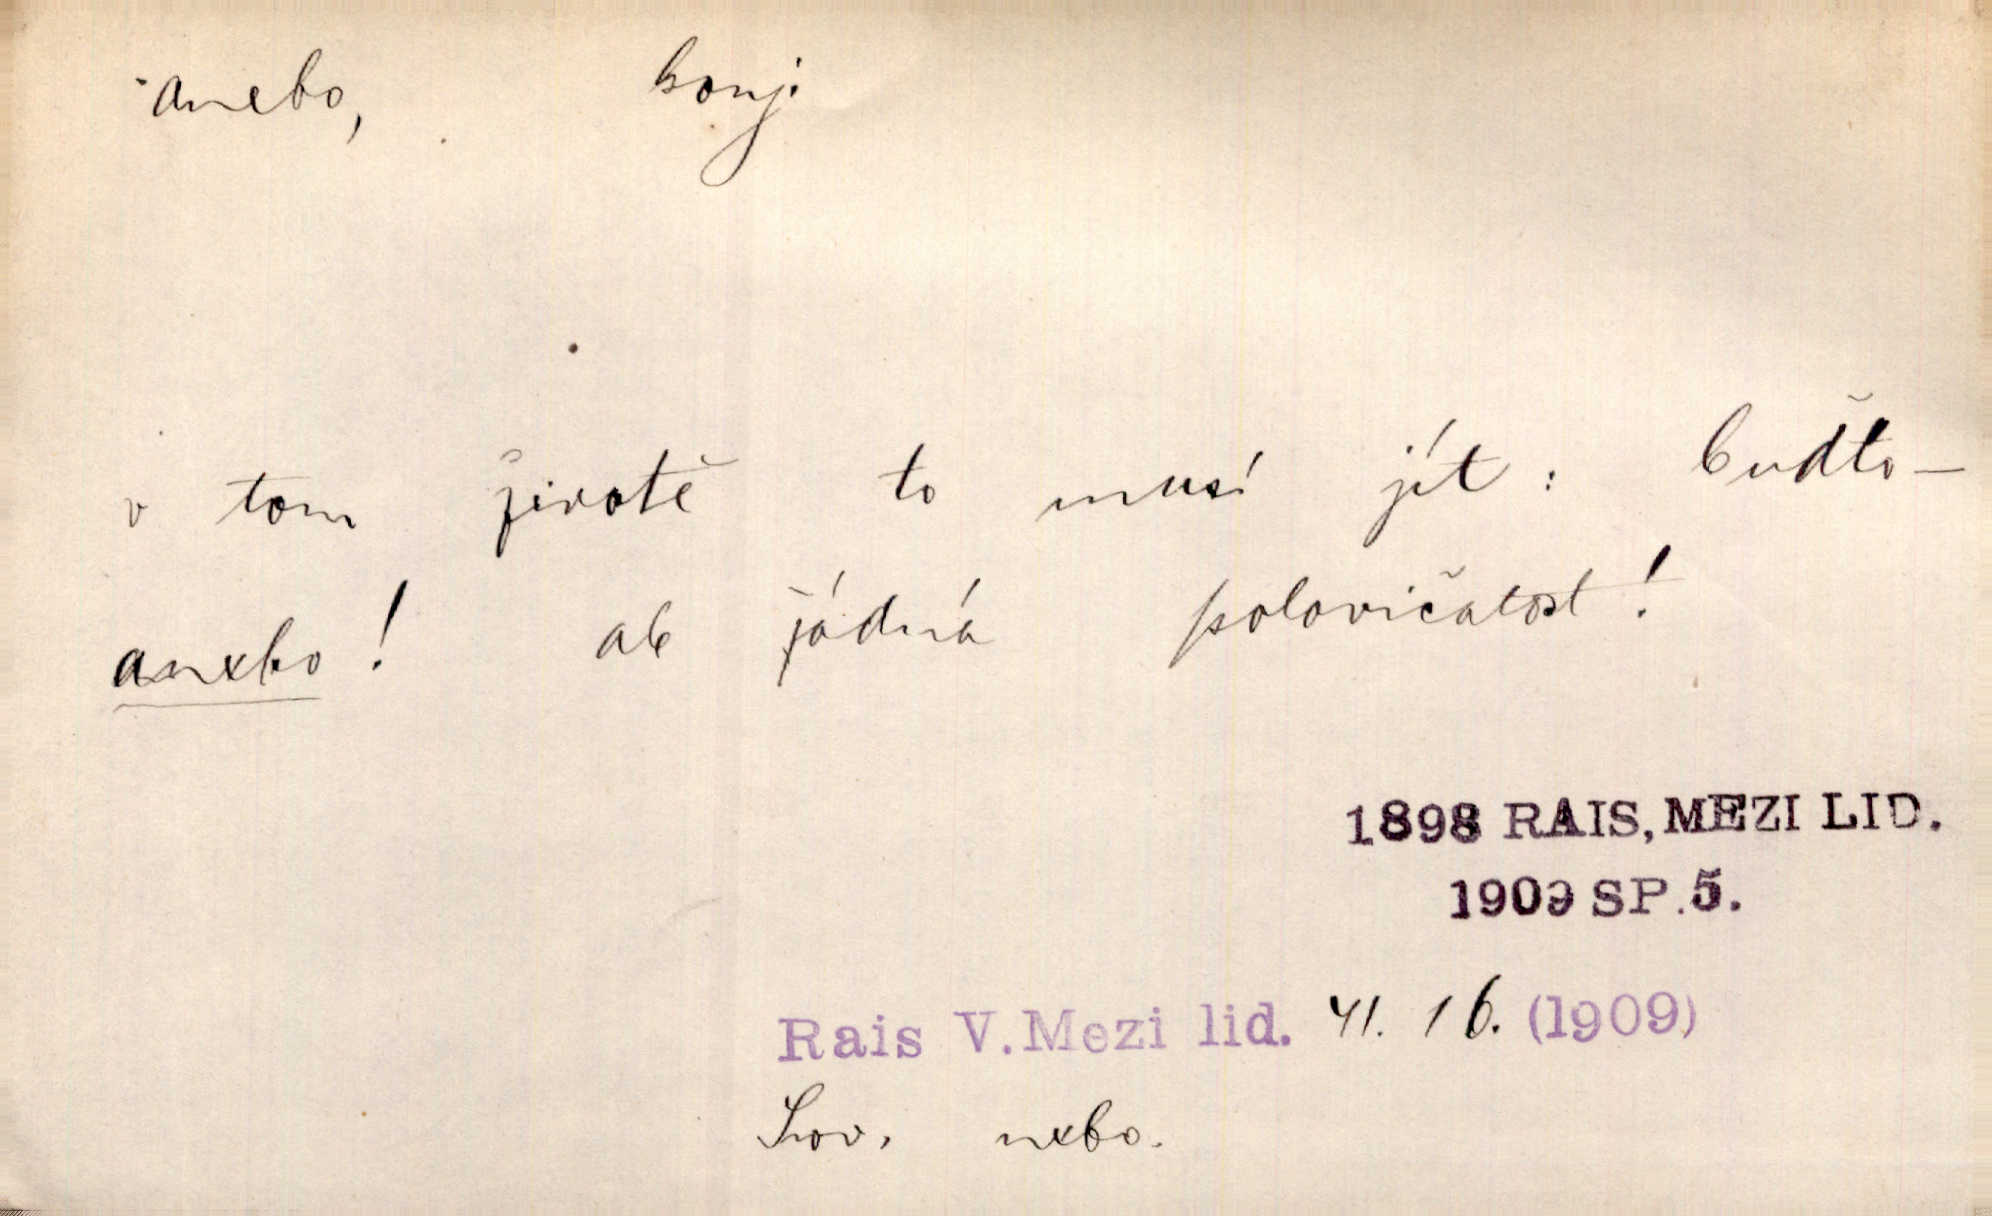 anebo, konj.
v tom životě to musí jít: buďto—
anebo! ale žádná polovičatost!
1898 RAIS, MEZI LID.
1909 SP.5.
Rais V. Mezi lid. 41. 16. (1909)
Srov. nebo.